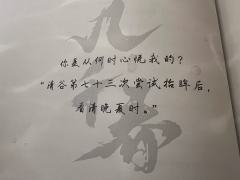 你是从何时心悦我的？
“清谷第七十三次尝试抬眸后，
看清晚夏时。”